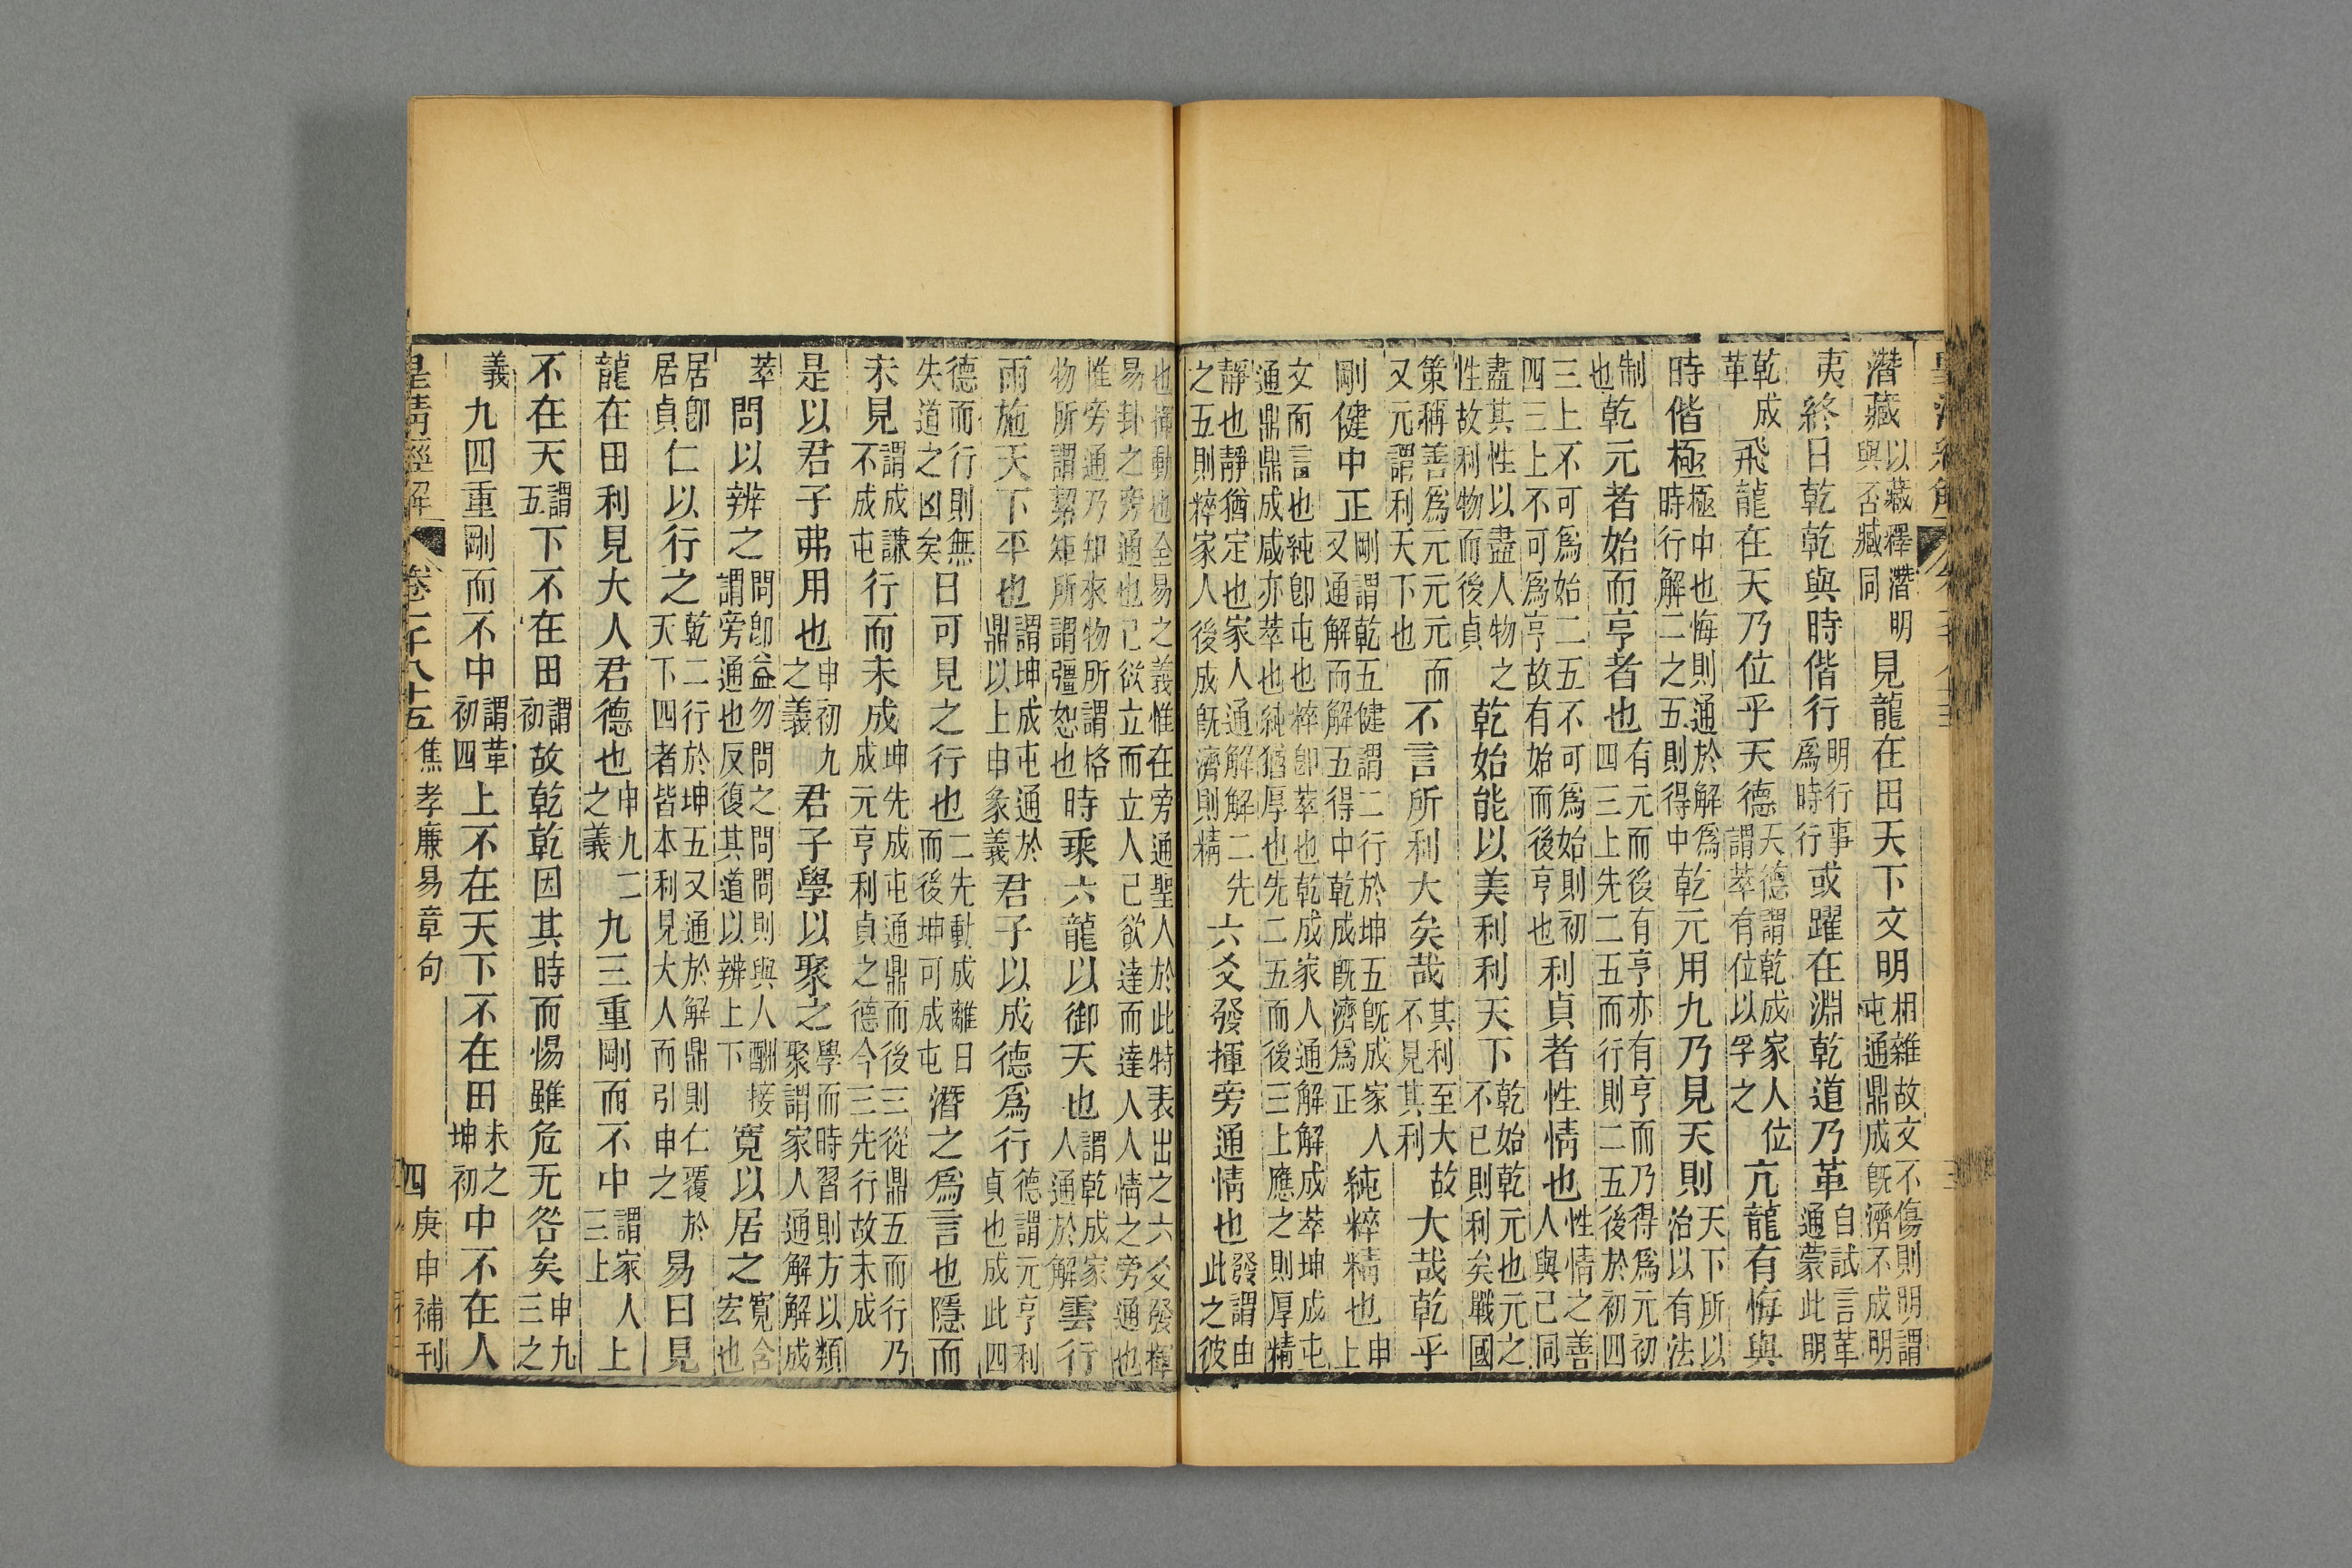 潛藏以藏釋潛明與否藏同見龍在田天下文明相雜故文不傷則明謂屯通鼎成旣濟不成明
夷終日乾乾與時偕行明行事爲時行或躍在淵乾道乃革自試言革通蒙此明
乾成革飛龍在天乃位乎天德天德謂乾成家人位謂萃有位以孚之亢龍有悔與
時偕極極中也悔則通於解爲時行解二之五則得中乾元用九乃見天則天下所以治以有法
制也乾元者始而亨者也有元而後有亨亦有亨而乃得爲元初四三上先二五而行則二五後於初四
三上不可爲始二五不可爲始則初四三上不可爲亨故有始而後亨也利貞者性情也性情之善人與己同
盡其性以盡人物之性故利物而後貞乾始能以美利利天下乾始乾元也元之不已則利矣戰國
策稱善爲元元元而又元謂利天下也不言所利大矣哉其利至大故不見其利大哉乾乎
剛健中正剛謂乾五健謂二行於坤五旣成家人又通解而解五得中乾成旣濟爲正純粹精也申上
文而言也純卽屯也粹卽萃也乾成家人通解解成萃坤成屯通鼎鼎成咸亦萃也純猶厚也先二五而後三上應之則厚精
靜也靜猶定也家人通解解二先之五則粹家人後成旣濟則精六爻發揮旁通情也發謂由此之彼
也揮動也全易之義惟在旁通聖人於此特表出之六爻發揮易卦之旁通也己欲立而立人己欲達而達人人情之旁通也
惟旁通乃知來物所謂格物所謂絜矩所謂彊恕也時乘六龍以御天也謂乾成家人通於解雲行
雨施天下平也謂坤成屯通於鼎以上申彖義君子以成德爲行德謂元亨利貞也成此四
德而行行則無失道之凶矣日可見之行也二先動成離日而後坤可成屯潛之爲言也隱而
未見謂成謙不成屯行而未成坤先成屯通鼎而後三從鼎五而行乃成元亨利貞之德今三先行故未成
是以君子弗用也申初九之義君子學以聚之學而時習則方以類聚謂家人通解解成
萃問以辨之問卽益勿問之問問則與人酬接謂旁通也反復其道以辨上下寬以居之寬含宏也
居卽居貞仁以行之乾二行於坤五又通於解鼎則仁覆於天下四者皆本利見大人而引申之易曰見
龍在田利見大人君德也申九二之義九三重剛而不中謂家人三上上
不在天謂五下不在田謂初故乾乾因其時而惕雖危无咎矣申九三之
義九四重剛而不中謂革初四上不在天下不在田未之坤初中不在人
皇清經解 卷一千八十五 焦孝廉易章句 四 庚申補刊